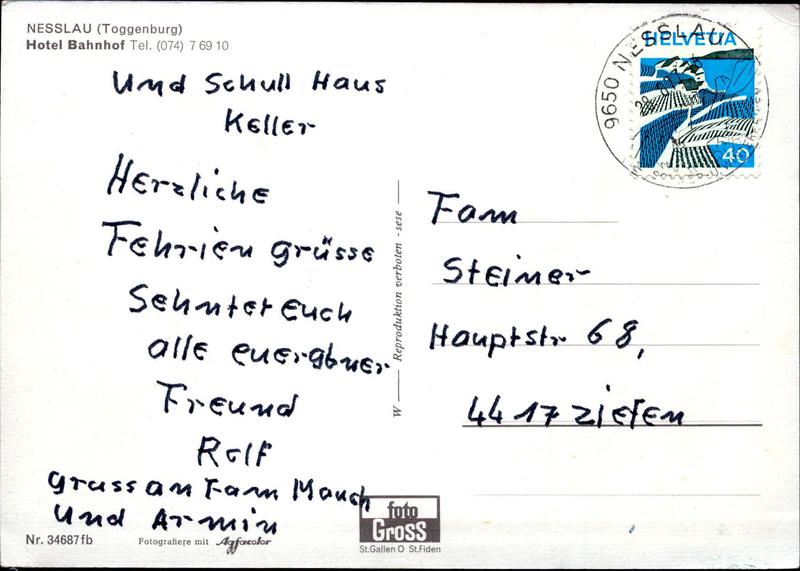 NESSLAU (Toggenburg)
Hotel Bahnhof Tel. (074) 7 69 10
Und Schull Haus
Keller
Herzliche
Fehrien grüsse
Sehntet Euch
alle euer
Freund
Rolf
gruss an Fam Mauch
und Armin
Nr. 34687fb
Fotografiere mit Agfacolor
W — Reproduktion verboten - sese —
foto
Gross
St.Gallen O St.Fiden
9650 NESSLAU
HELVETIA
40
Fam
Steiner
Hauptstr 68,
4417 Ziefen